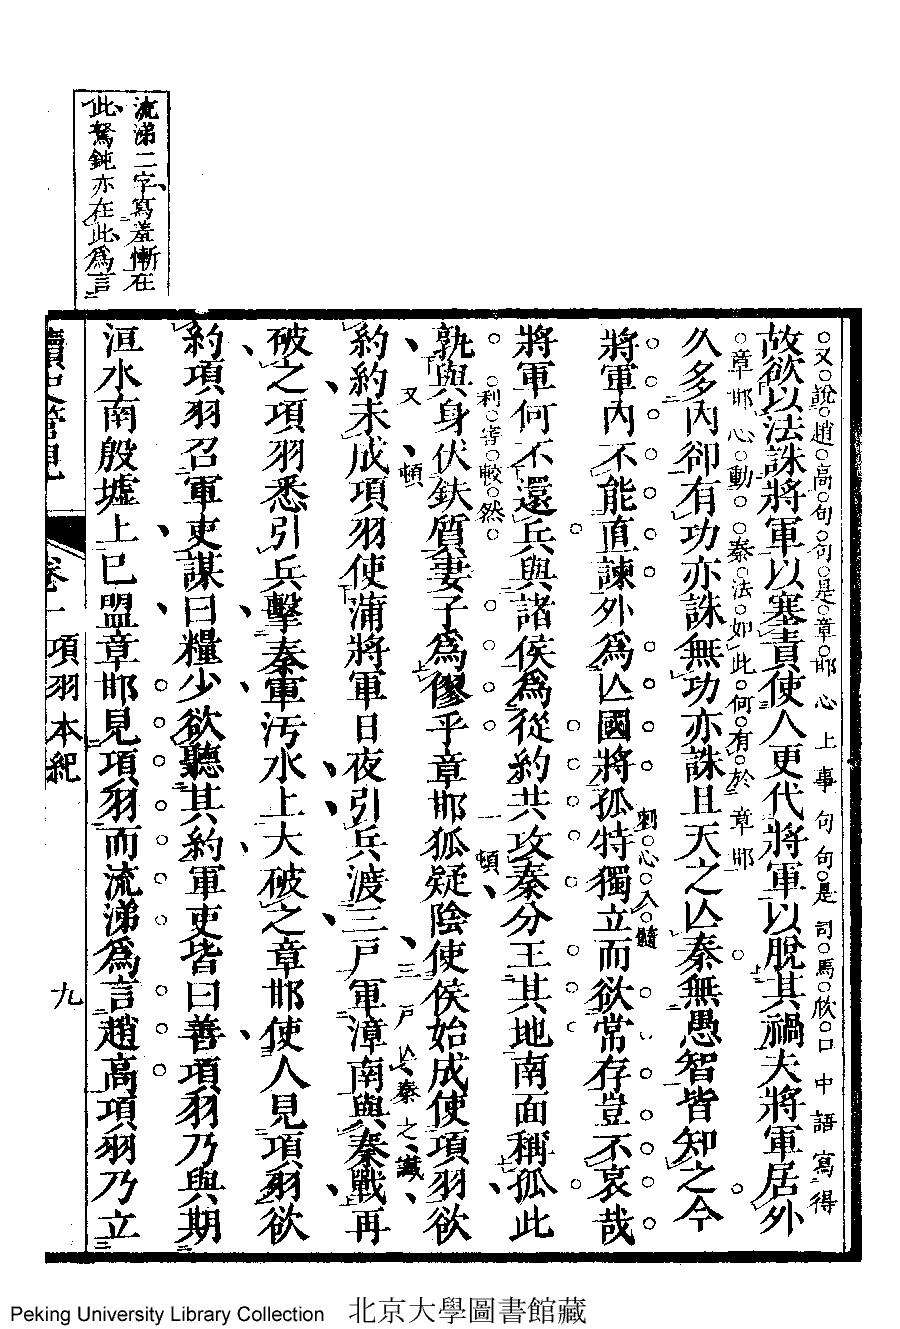 流涕二字寫羞慚在
此駑鈍亦在此爲言
又說趙高句句是章邯心上事句句是司馬欣口中語寫得
故欲以法誅將軍以塞責使人更代將軍以脫其禍夫將軍居外
章邯心動秦法如此何有於章邯
久多內卻有功亦誅無功亦誅且天之亾秦無愚智皆知之今
將軍內不能直諫外爲亾國將孤特獨立而欲常存豈不哀哉
刺心入髓
將軍何不還兵與諸侯爲從約共攻秦分王其地南面稱孤此
利害較然
一頓
孰與身伏鈇質妻子爲僇乎章邯狐疑陰使侯始成使項羽欲
又頓
三戶亾秦之讖
約約未成項羽使蒲將軍日夜引兵渡三戶軍漳南與秦戰再
破之項羽悉引兵擊秦軍汚水上大破之章邯使人見項羽欲
約項羽召軍吏謀曰糧少欲聽其約軍吏皆曰善項羽乃與期
洹水南殷墟上已盟章邯見項羽而流涕爲言趙高項羽乃立
讀史管見
卷一
項羽本紀
九
Peking University Library Collection 北京大學圖書館藏